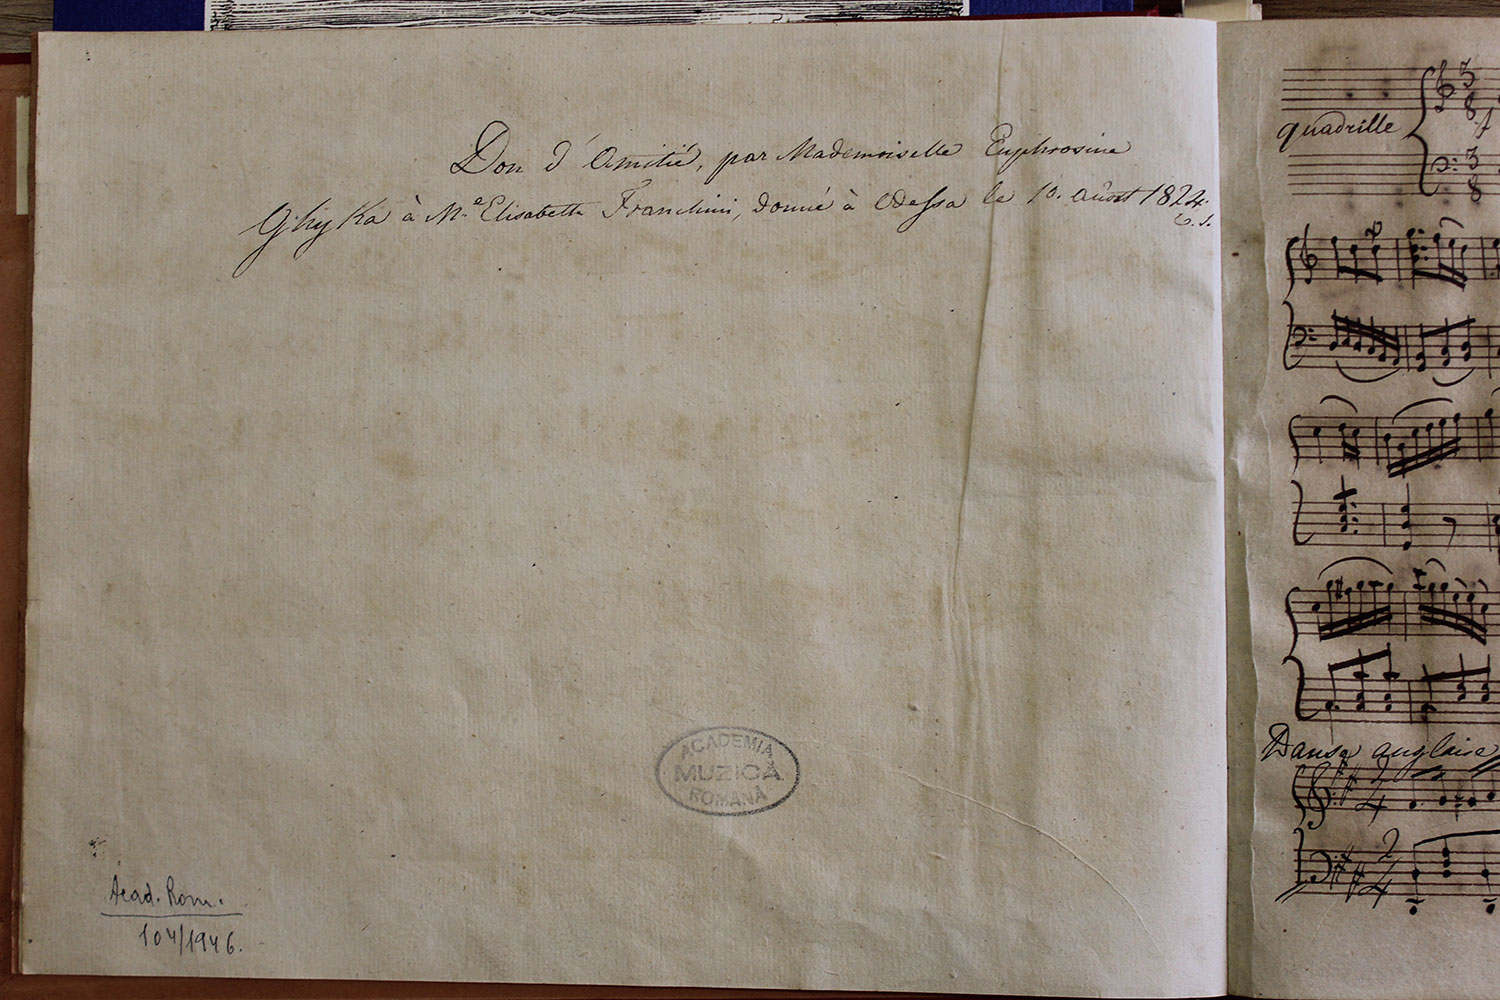 Don d'Amitié, par Mademoiselle Euphrosine
Ghyka à M.e Elisabette Franchini, donné à Odessa le 10. août 1824.
v. s.
ACADEMIA
MUZICĂ
ROMÂNĂ
Acad. Rom.
104/1946.
quadrille
3
8
f
3
8
Danse anglaise
2
4
2
4